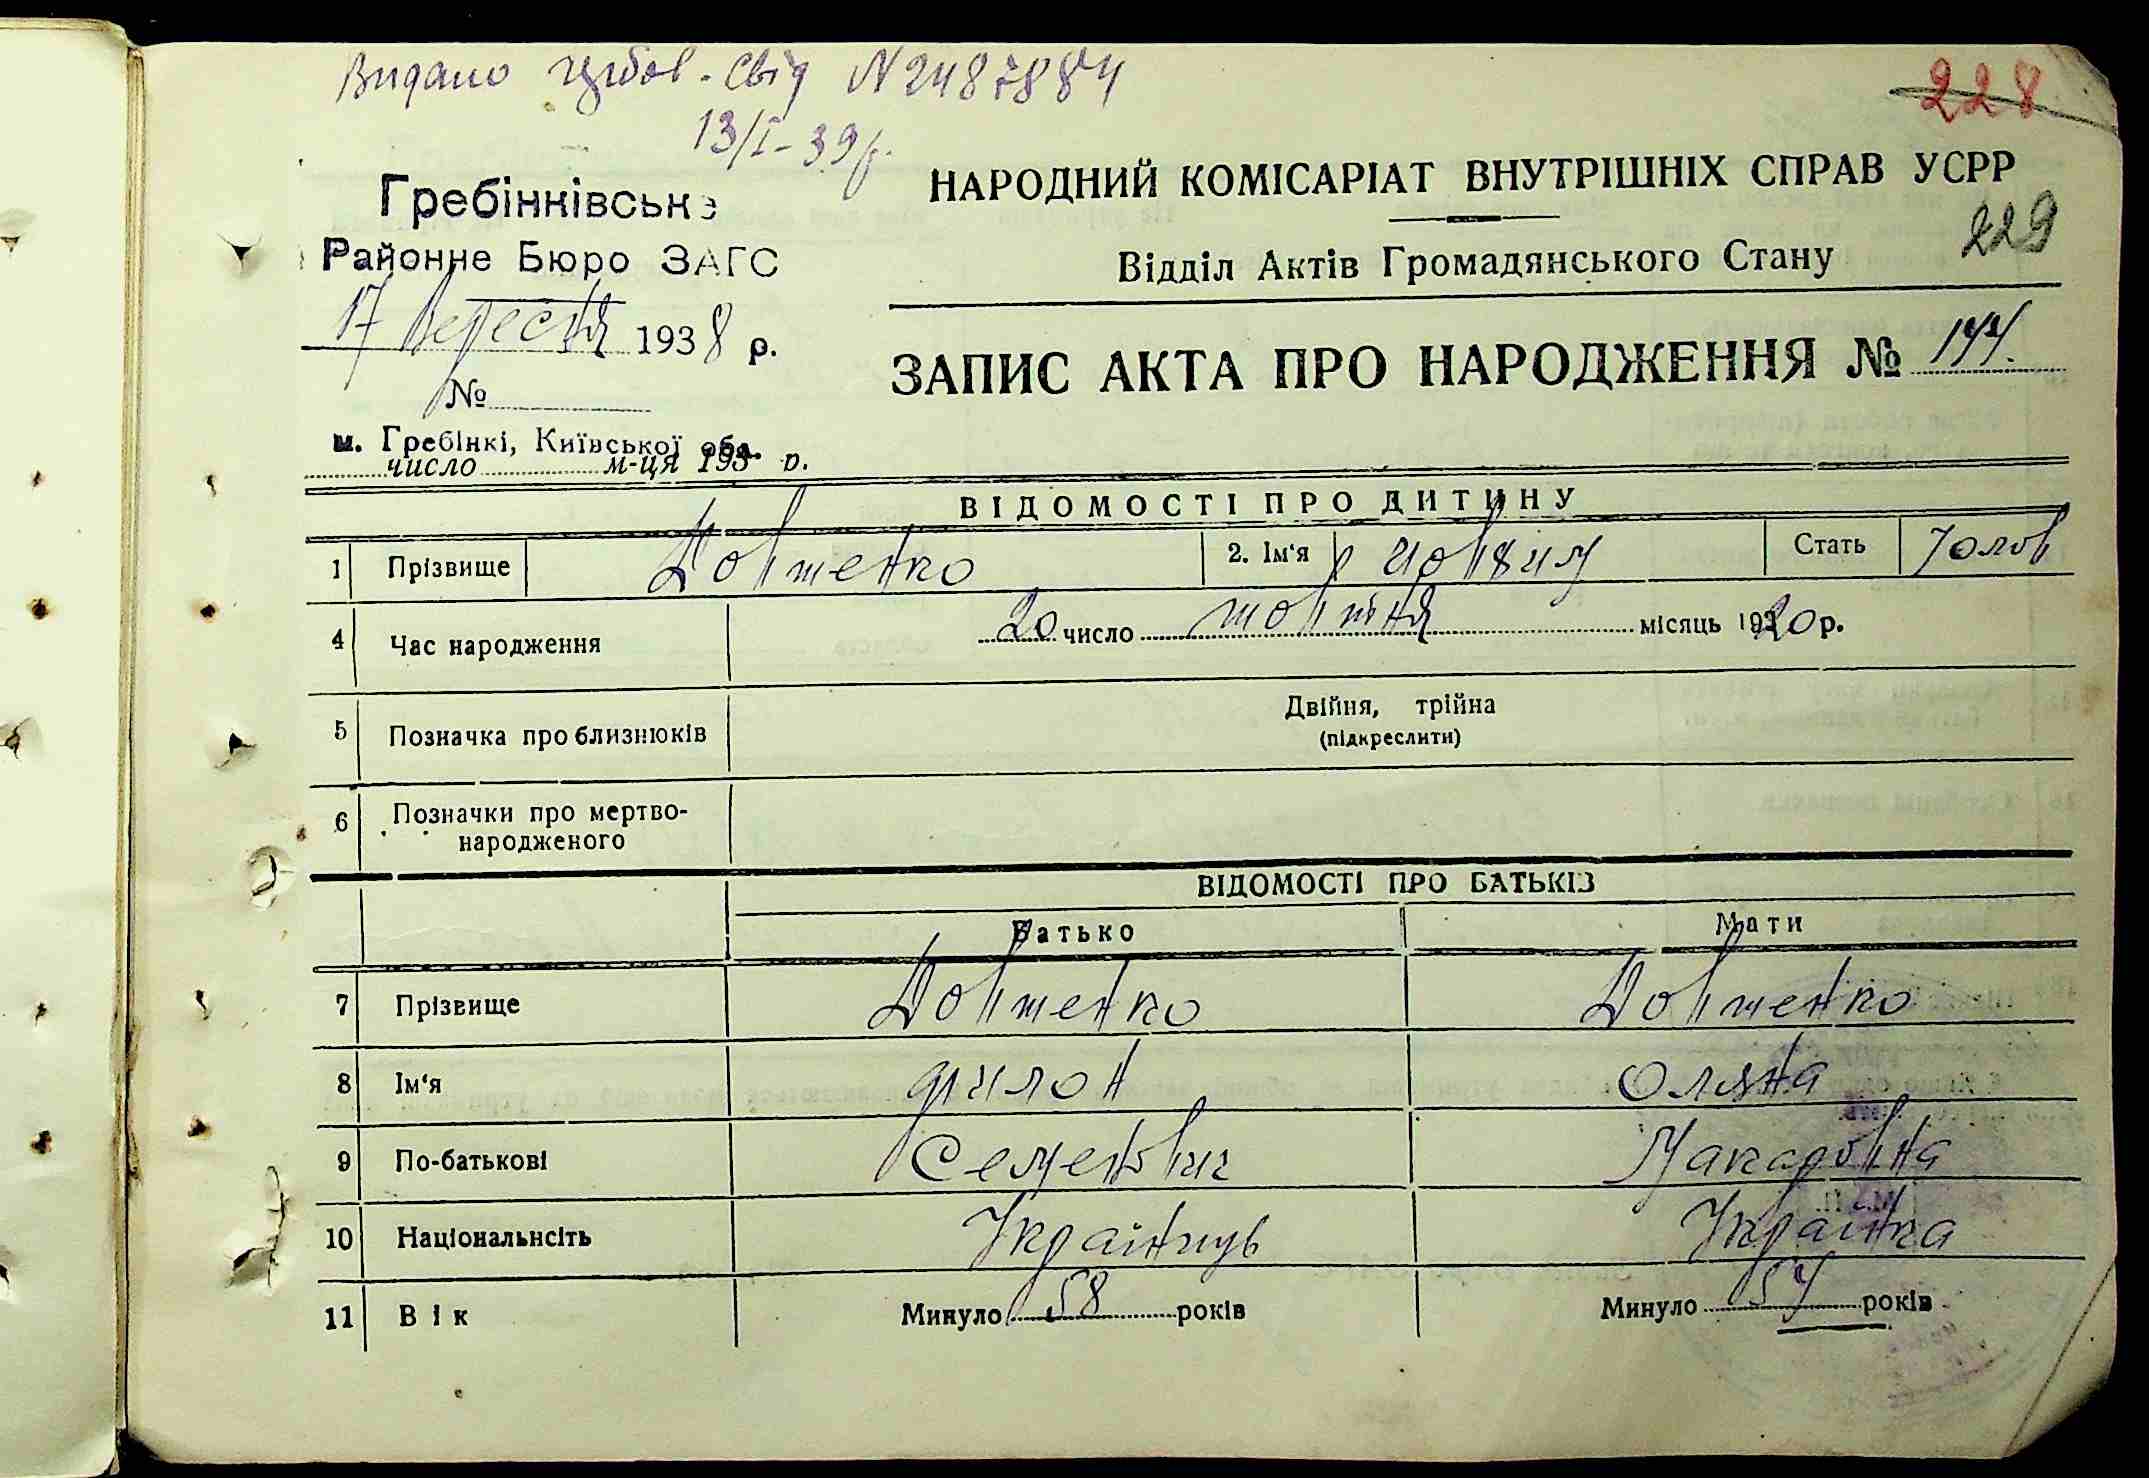 Видано свід N 2487884
13/I-39р.
228
Гребінківське
Районне Бюро ЗАГС
17 Вересня 1938 р.
№
м. Гребінкі, Київської обл.
число м-ця 193 р.
НАРОДНИЙ КОМІСАРІАТ ВНУТРІШНІХ СПРАВ УСРР
229
Відділ Актів Громадянського Стану
ЗАПИС АКТА ПРО НАРОДЖЕННЯ № 144.
ВІДОМОСТІ ПРО ДИТИНУ
1 Прізвище Довженко 2. Ім‘я Стать Чолов
4 Час народження 20 число жовтня місяць 1920 р.
5 Позначка про близнюків Двійня, трійна
(підкреслити)
6 Позначки про мертво-
народженого
ВІДОМОСТІ ПРО БАТЬКІВ
Батько Мати
7 Прізвище Довженко Довженко
8 Ім‘я Филон Оляна
9 По-батькові Семенович Макаровна
10 Національнсіть Українець Українка
11 Вік Минуло 58 років Минуло 54 років